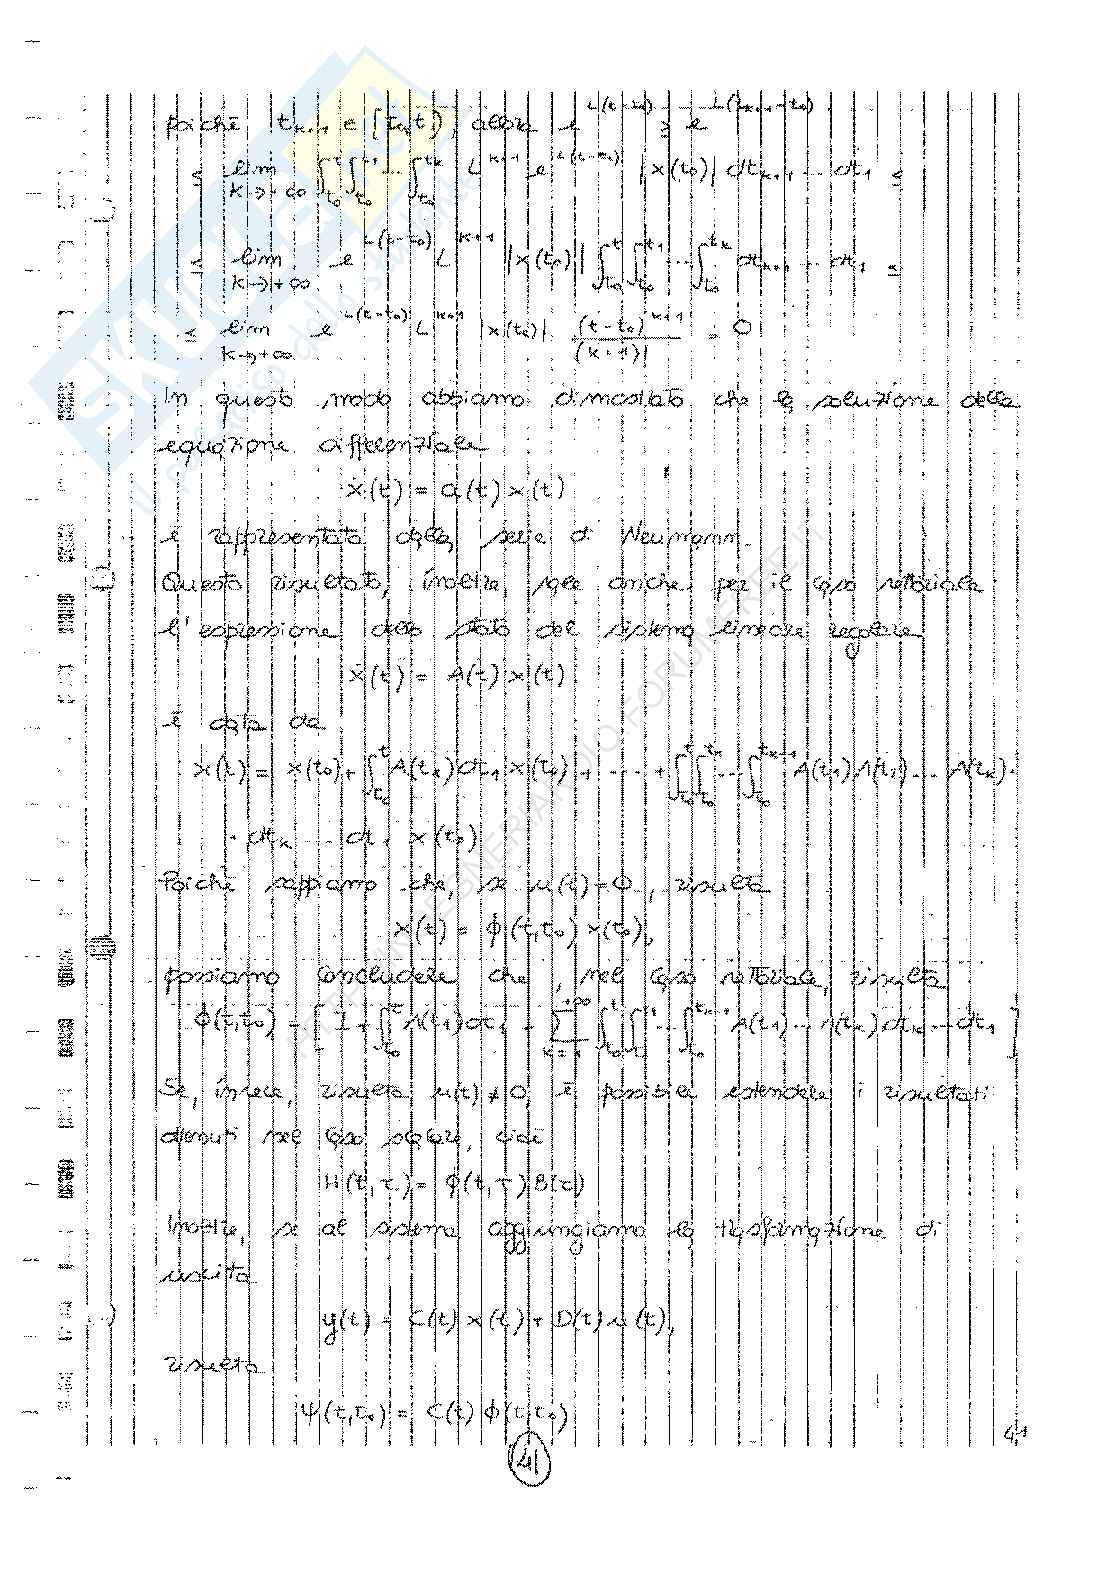 poiché t_{k+1} ∈ [t_0, t), allora e^{L(t-t_0)} ≥ e^{L(t_{k+1}-t_0)}
≤ lim_{k→+∞} ∫_{t_0}^{t} ∫_{t_0}^{t_1} ... ∫_{t_0}^{t_k} L^{k+1} e^{L(t-t_0)} |x(t_0)| dt_{k+1} ... dt_1 ≤
≤ lim_{k→+∞} e^{L(t-t_0)} L^{k+1} |x(t_0)| ∫_{t_0}^{t} ∫_{t_0}^{t_1} ... ∫_{t_0}^{t_k} dt_{k+1} ... dt_1 ≤
≤ lim_{k→+∞} e^{L(t-t_0)} L^{k+1} |x(t_0)| (t-t_0)^{k+1} / (k+1)! = 0
In questo modo abbiamo dimostrato che la soluzione della
equazione differenziale
ẋ(t) = a(t) x(t)
è rappresentata dalla serie di Neumann.
Questo risultato, inoltre, vale anche per il caso vettoriale
l'espressione dello stato del sistema lineare regolare
ẋ(t) = A(t) x(t)
è data da
x(t) = x(t_0) + ∫_{t_0}^{t} A(t_1) dt_1 x(t_0) + ... + ∫_{t_0}^{t} ∫_{t_0}^{t_1} ... ∫_{t_0}^{t_{k-1}} A(t_1) A(t_2) ... A(t_k) ·
· dt_k ... dt_1 x(t_0)
Poiché sappiamo che, se u(t) = 0, risulta
x(t) = ϕ(t,t_0) x(t_0),
possiamo concludere che, nel caso vettoriale, risulta
ϕ(t,t_0) = [ I + ∫_{t_0}^{t} A(t_1) dt_1 + ∑_{k=1}^{+∞} ∫_{t_0}^{t} ∫_{t_0}^{t_1} ... ∫_{t_0}^{t_{k-1}} A(t_1) ... A(t_k) dt_k ... dt_1 ]
Se, invece, risulta u(t) ≠ 0, è possibile estendere i risultati
ottenuti nel caso scalare, cioè
H(t,τ) = ϕ(t,τ) B(τ)
Inoltre, se al sistema aggiungiamo la trasformazione di
uscita
y(t) = C(t) x(t) + D(t) u(t),
risulta
Ψ(t,t_0) = C(t) ϕ(t,t_0)
41
41